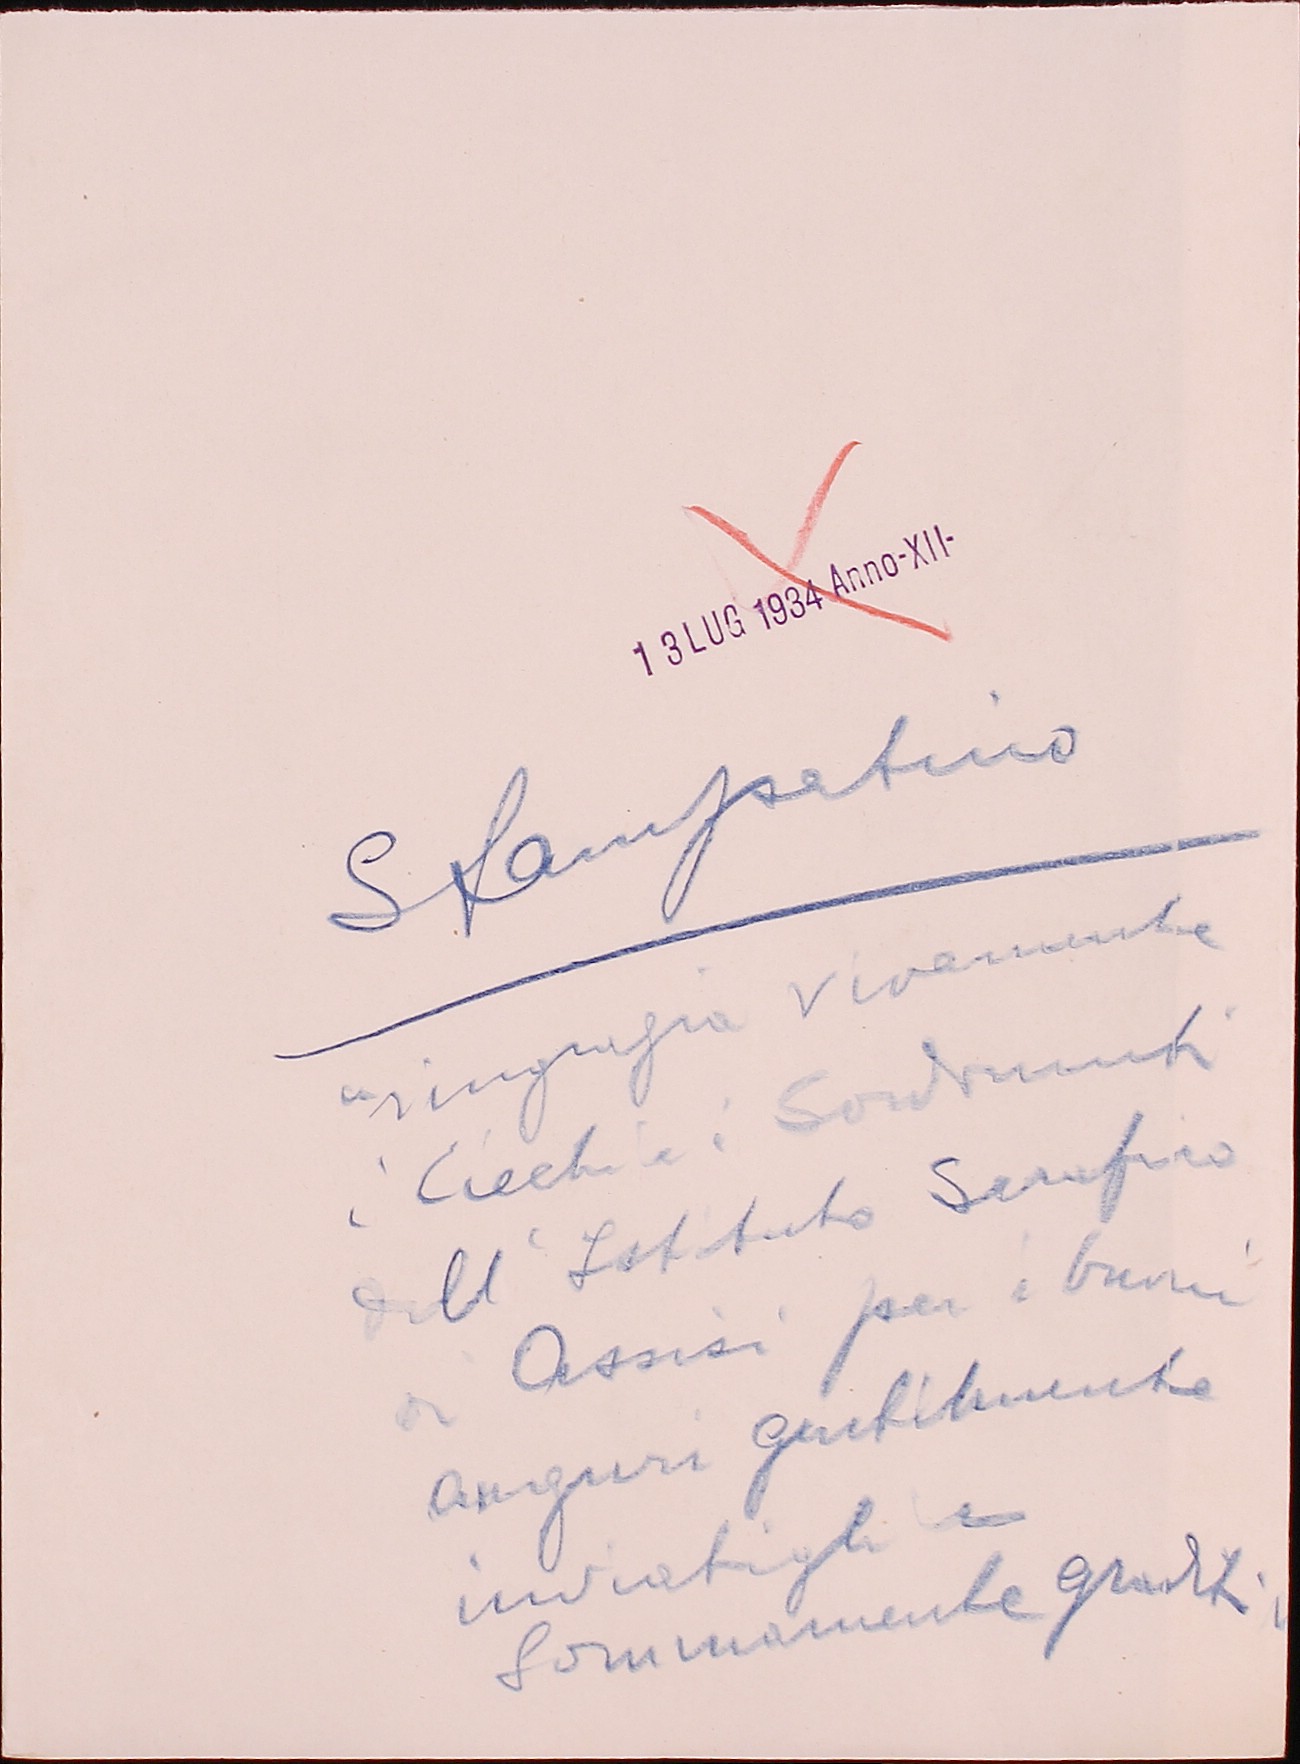 13 LUG 1934 Anno-XII-
Stampatino
"ringrazia vivamente
i Ciechi e i Sordomuti
dell'Istituto Serafico
di Assisi per i buoni
auguri gentilmente
inviatigli e
sommamente graditi"